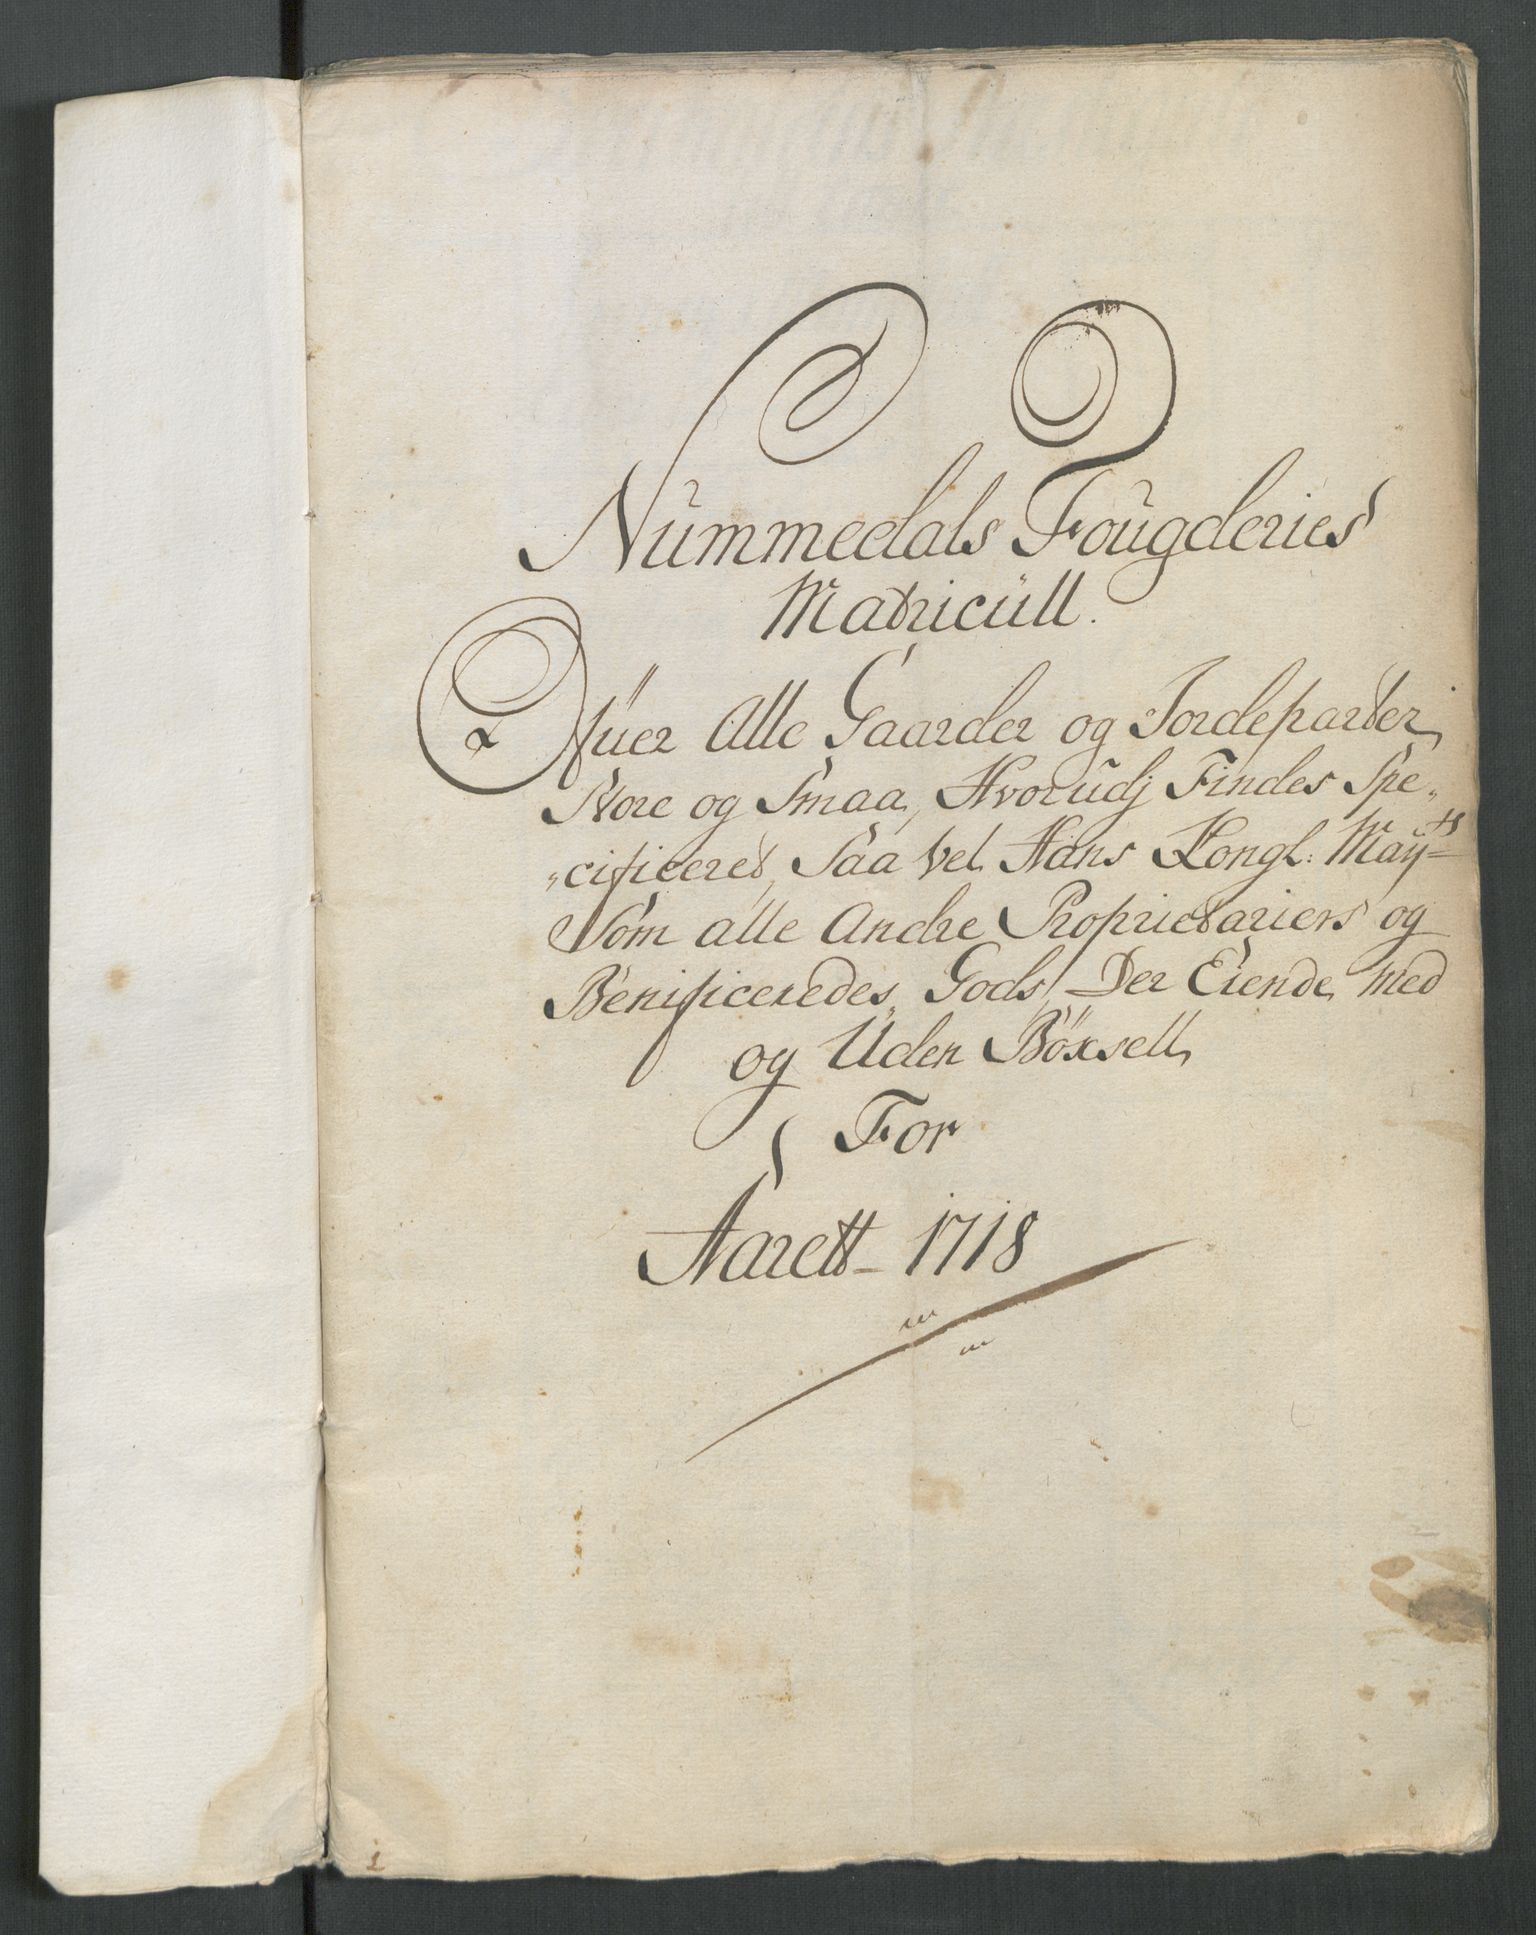 Nummedals Fougderies
Matricull.
Ofuer Alle Gaarder og Jordeparter
Store og Smaa, Hvorudj Findes Spe„
„cificeret, Saa vel Hans Kongl: Mayts
Som alle Andre Proprietariers og
Benificeredes Gods, Der Eiende med
og Uden Böxsell,
For
Aarett 1718
1